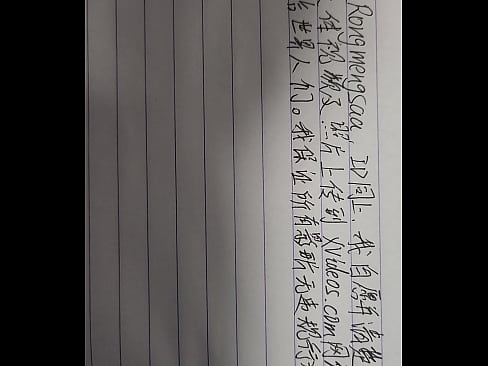 Rongmengsaa, ID同上, 我自愿并清楚
体视频及照片上传到 Xvideos.com网
世界人们。我保证所有最新无违规行